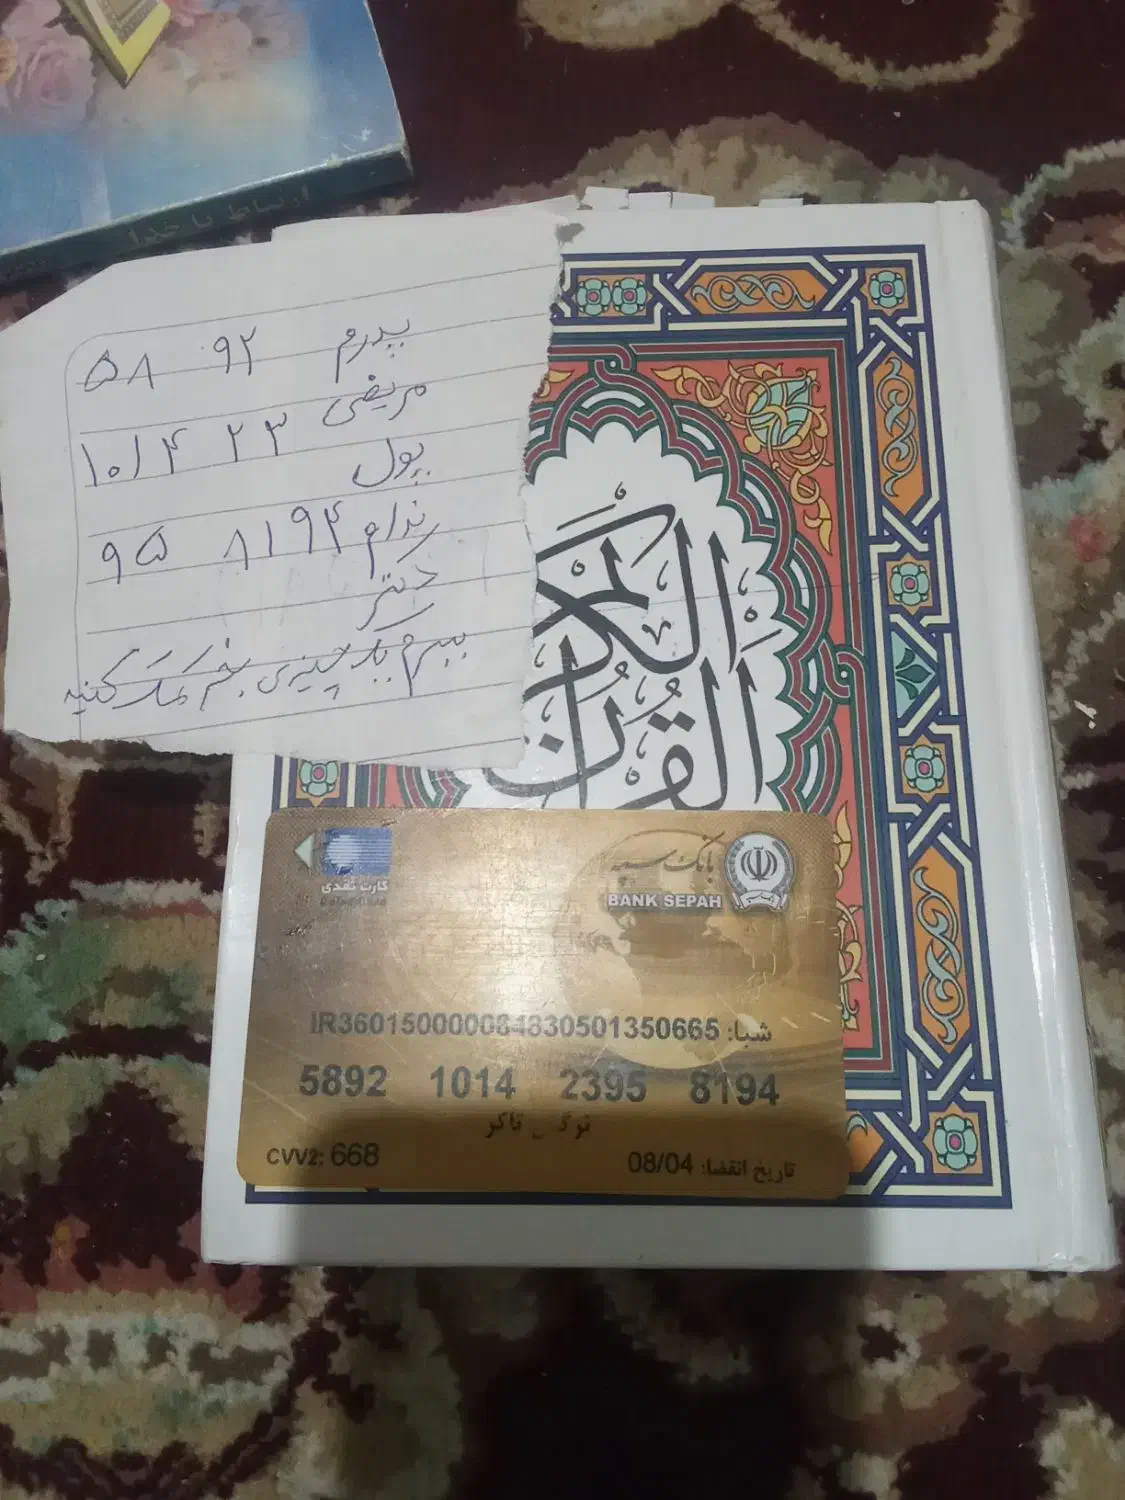 ارتباط با خدا
پدرم ۹۲ ۵۸
مریضی
۲۳ ۱۰۱۴
پول
ندارم ۸۱۹۴ ۹۵
دکتر
ببرم یا چیزی بخرم کمک کنید
القرآن الکریم
کارت نقدی
بانک سپه
BANK SEPAH
شبا: IR360150000084830501350665
5892 1014 2395 8194
CVV2: 668
تاریخ انقضا: 08/04